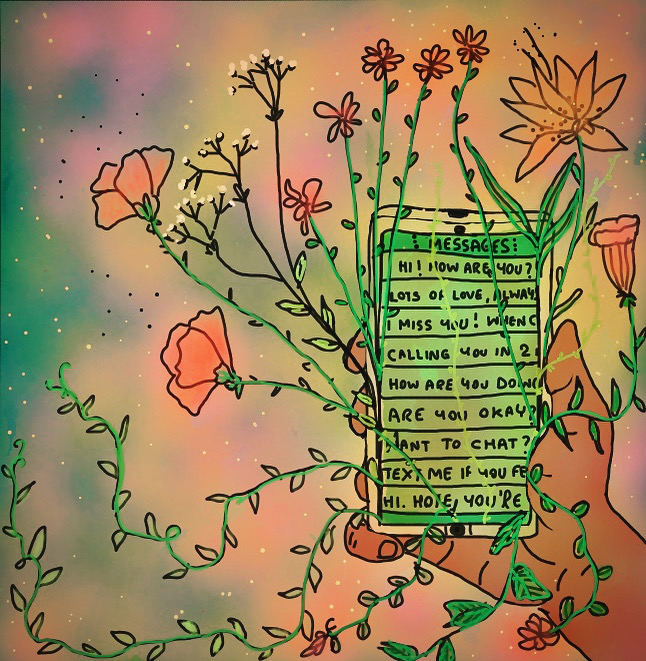 : MESSAGES :
HI! HOW ARE YOU?
LOTS OF LOVE, ALWAYS
I MISS YOU! WHEN C
CALLING YOU IN 2
HOW ARE YOU DOIN
ARE YOU OKAY?
WANT TO CHAT?
TEXT ME IF YOU FE
HI. HOPE, YOU'RE